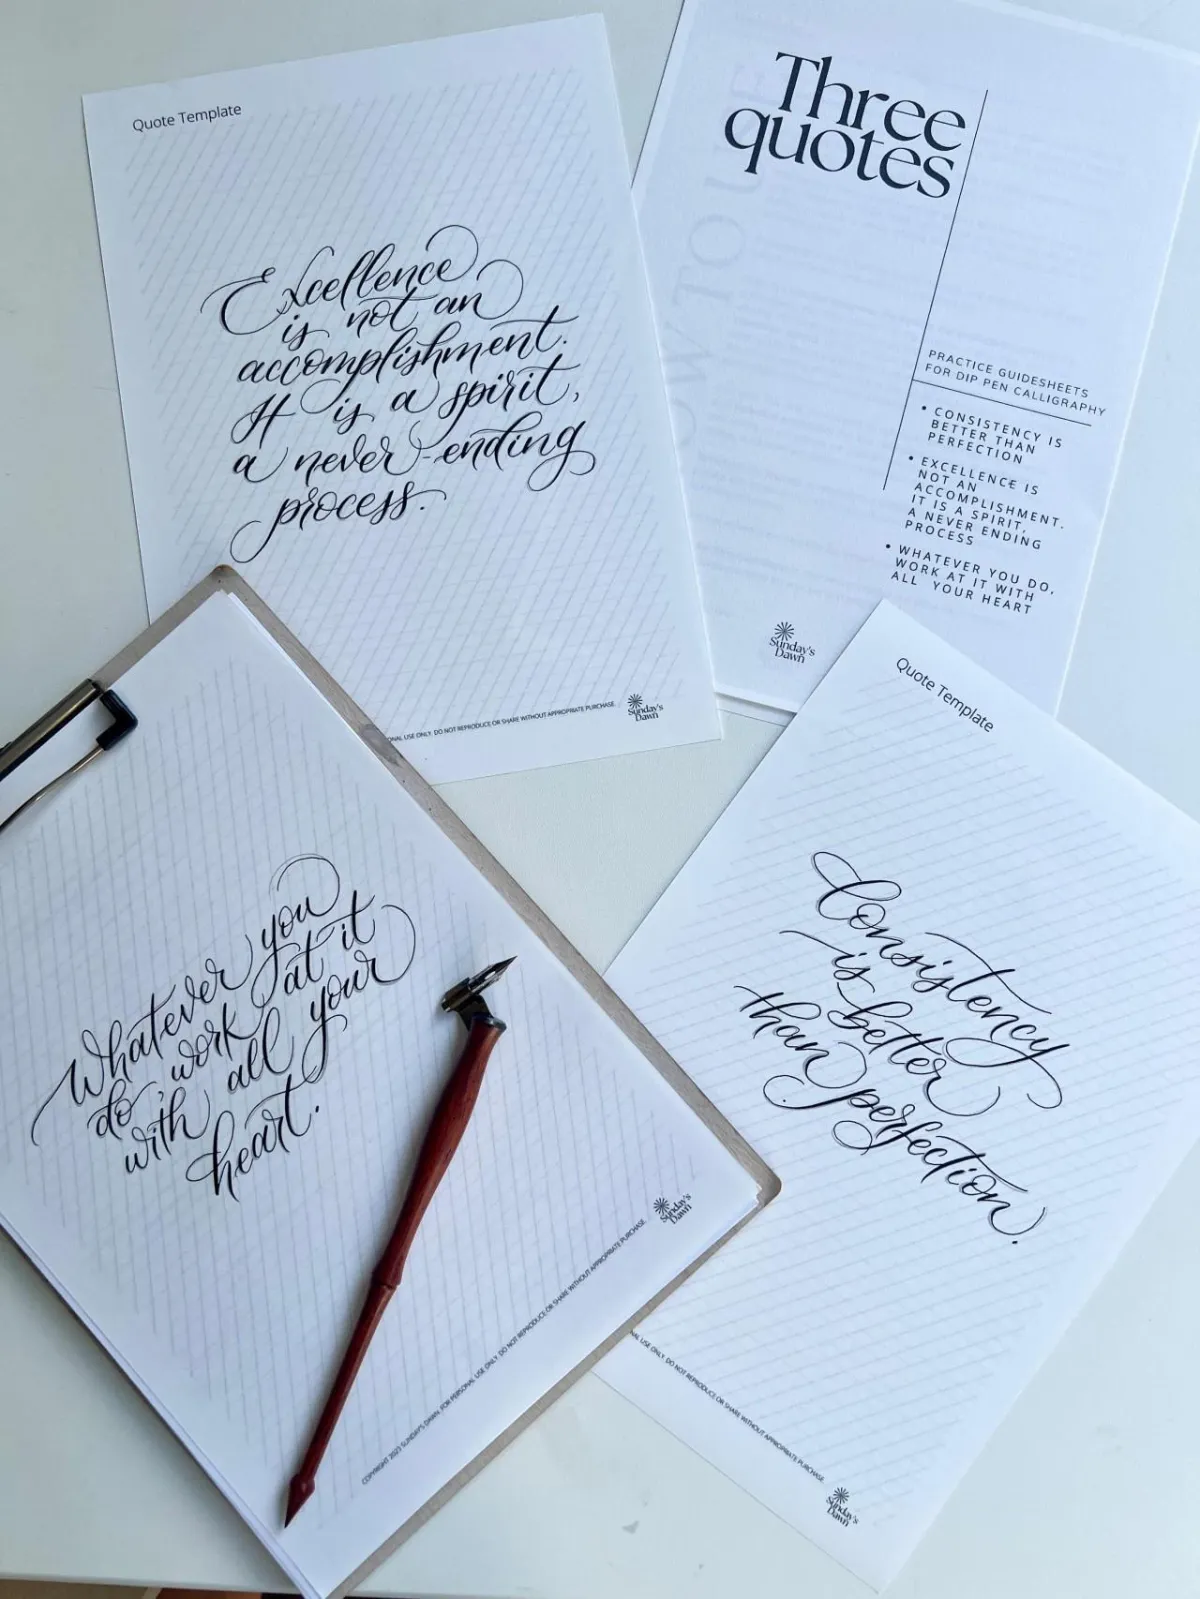 Quote Template
Excellence
is not an
accomplishment.
It is a spirit,
a never-ending
process.
ONAL USE ONLY. DO NOT REPRODUCE OR SHARE WITHOUT APPROPRIATE PURCHASE.
Sunday's
Dawn
Three
quotes
PRACTICE GUIDESHEETS
FOR DIP PEN CALLIGRAPHY
• CONSISTENCY IS
BETTER THAN
PERFECTION
• EXCELLENCE IS
NOT AN
ACCOMPLISHMENT.
IT IS A SPIRIT,
A NEVER ENDING
PROCESS
• WHATEVER YOU DO,
WORK AT IT WITH
ALL YOUR HEART
Sunday's
Dawn
HOW TO USE
Whatever you
do, work at it
with all your
heart.
COPYRIGHT 2023 SUNDAY'S DAWN. FOR PERSONAL USE ONLY. DO NOT REPRODUCE OR SHARE WITHOUT APPROPRIATE PURCHASE.
Sunday's
Dawn
Quote Template
Consistency
is better
than perfection.
NAL USE ONLY. DO NOT REPRODUCE OR SHARE WITHOUT APPROPRIATE PURCHASE.
Sunday's
Dawn